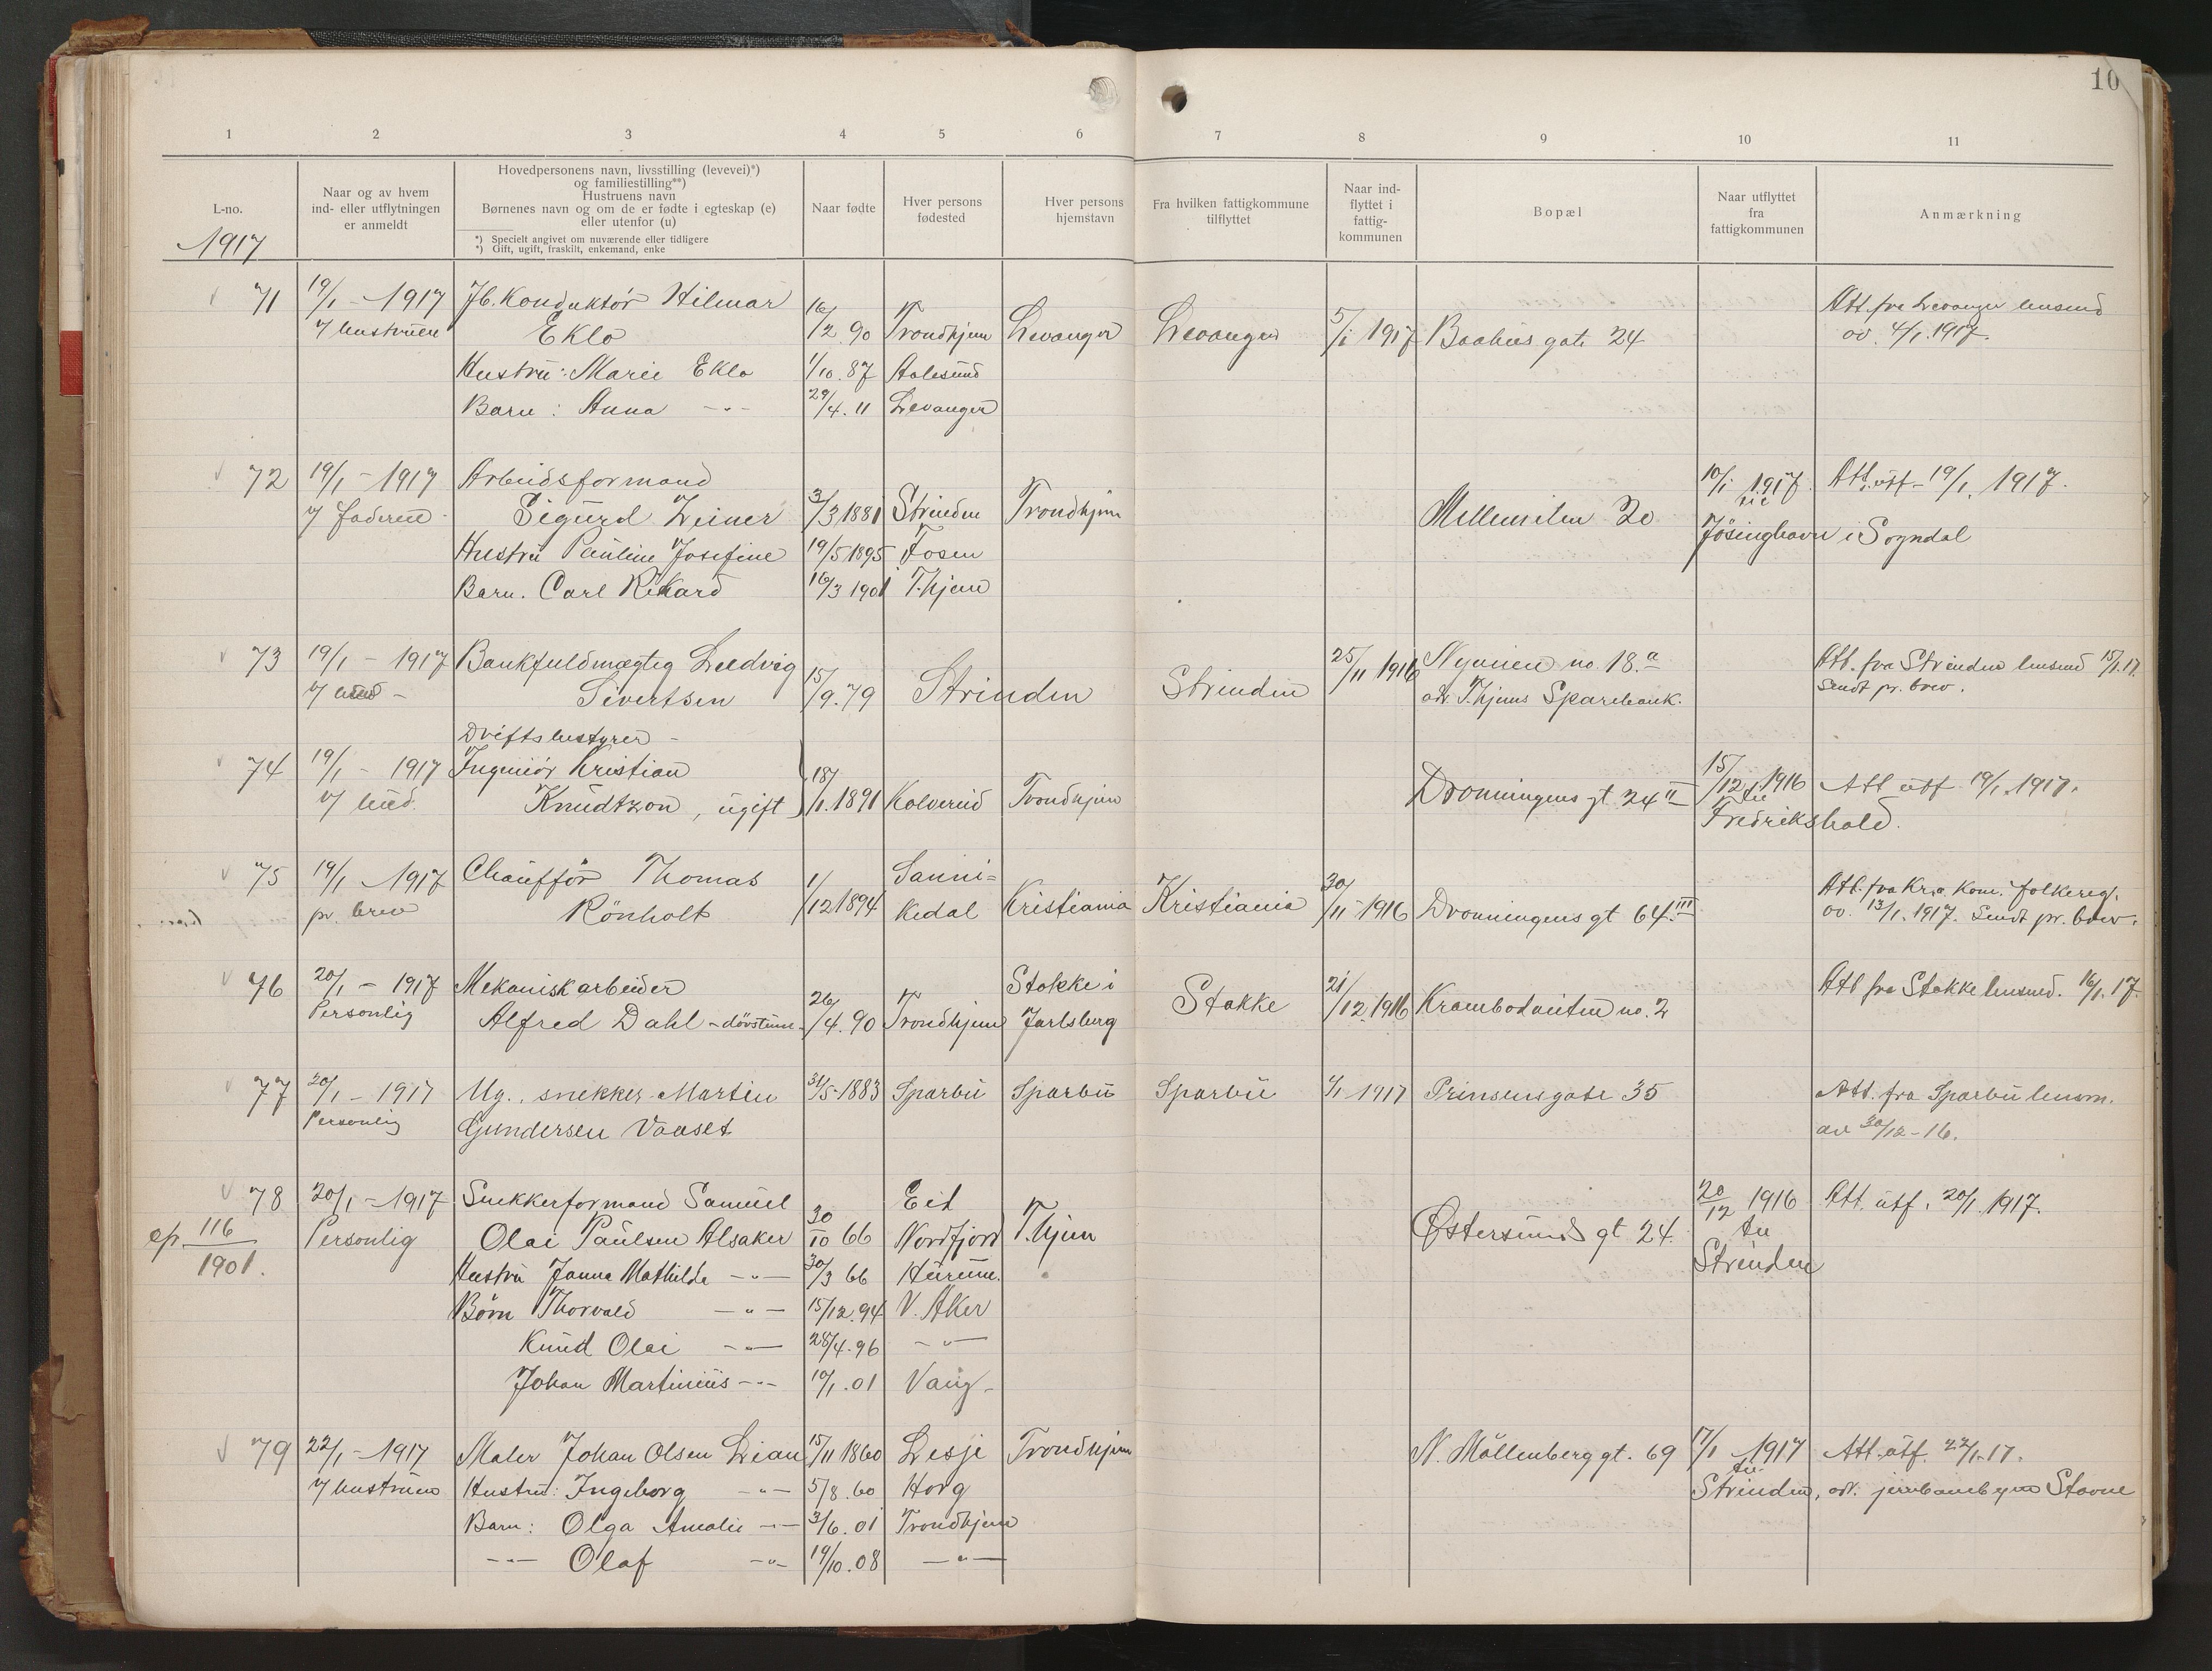 10
1 2 3 4 5 6 7 8 9 10 11
L-no.
1917
Naar og av hvem
ind- eller utflytningen
er anmeldt
Hovedpersonens navn, livsstilling (levevei)*)
og familiestilling**)
Hustruens navn
Børnenes navn og om de er fødte i egteskap (e)
eller utenfor (u)
*) Specielt angivet om nuværende eller tidligere
*) Gift, ugift, fraskilt, enkemand, enke
Naar fødte
Hver persons
fødested
Hver persons
hjemstavn
Fra hvilken fattigkommune
tilflyttet
Naar ind-
flyttet i
fattig-
kommunen
Bopæl
Naar utflyttet
fra
fattigkommunen
Anmærkning
71 19/1 - 1917 Jb. Konduktör Hilmar 16/2.90 Trondhjem Levanger Levanger 5/1 1917 Baahus gate 24 Att. fra Levanger lensmd
v/ hustruen Eklo av 4/1.1917.
Hustru: Marie Eklo 1/10.87 Aalesund
Barn: Anna -"- 29/4.11 Levanger
72 19/1 - 1917 Arbeidsformand 10/1 1917. Att. utf - 19/1. 1917.
v/ faderen - Sigurd Leiner 3/3 1881 Strinden Trondhjem Mellemilen 20 til
Jösinghavn i Sogndal
Hustru Pauline Josefine 19/5 1895 Fosen
Barn. Carl Rikard 16/3 1901 T.hjem
73 19/1 - 1917 Bankfuldmægtig Ludvig 15/9.79 Strinden Strinden 25/11 1916 Nyveien no. 18.a Att. fra Strinden lensmd 15/1.17.
v/ bud - Sivertsen adr. T.hjems Sparebank. Sendt pr. brev.
Driftsbestyrer -
74 19/1 - 1917 Ingeniör Kristian 18/1.1891 Kolvereid Trondhjem Dronningens gt. 24 II 15/12 1916 Att utf 19/1.1917.
v/ bud. Knudtzon, ugift til
Fredrikshald.
75 19/1 - 1917 Chauffør Thomas 1/12 1894 Sanni= Kristiania Kristiania 30/11 - 1916 Dronningens gt 64 III Att. fra Kr.a kom. folkereg.
pr. brev Rönholt kedal av. 13/1.1917. Sendt pr. brev.
76 20/1 - 1917 Mekanisk arbeider 26/4.90 Trondhjem Stokke i Stokke 21/12.1916 Krambodveiten no. 2 Att fra Stokke lensmd. 16/1.17.
Personlig Alfred Dahl - dövstum - Jarlsberg
77 20/1 - 1917 Ug. snekker Martin 31/5-1883 Sparbu Sparbu Sparbu 4/1 1917 Prinsensgate 35 Att. fra Sparbu lensm.
Personlig Gundersen Vaaset av 30/12-16.
78 20/1 - 1917 Snekkerformand Samuel Eid 20/12 1916 Att. utf. 20/1.1917.
cfr. 116/1901. Personlig Olai Paulsen Alsaker 30/10 66 Nordfjord T.hjem Østersunds gt 24. til
Strinden
Hustru Janna Mathilde -"- 30/3 66 Hurum.
Börn Thorvald -"- 15/12.94 V. Aker
Knud Olai -"- 28/4.96 -"-
Johan Martinius -"- 10/1.01 Vang -
79 22/1 - 1917 Maler Johan Olsen Lian 15/11 1860 Lesje Trondhjem N. Möllenberg gt. 69 17/1 1917 Att. utf. 22/1-17.
v/ hustruen Hustru: Ingeborg -"- 5/8.60 Horg til
Strinden, adr. jernbanebyen Stavne
Barn: Olga Amalie -"- 3/6.01 Trondhjem
-"- Olaf -"- 19/10.08 -"-